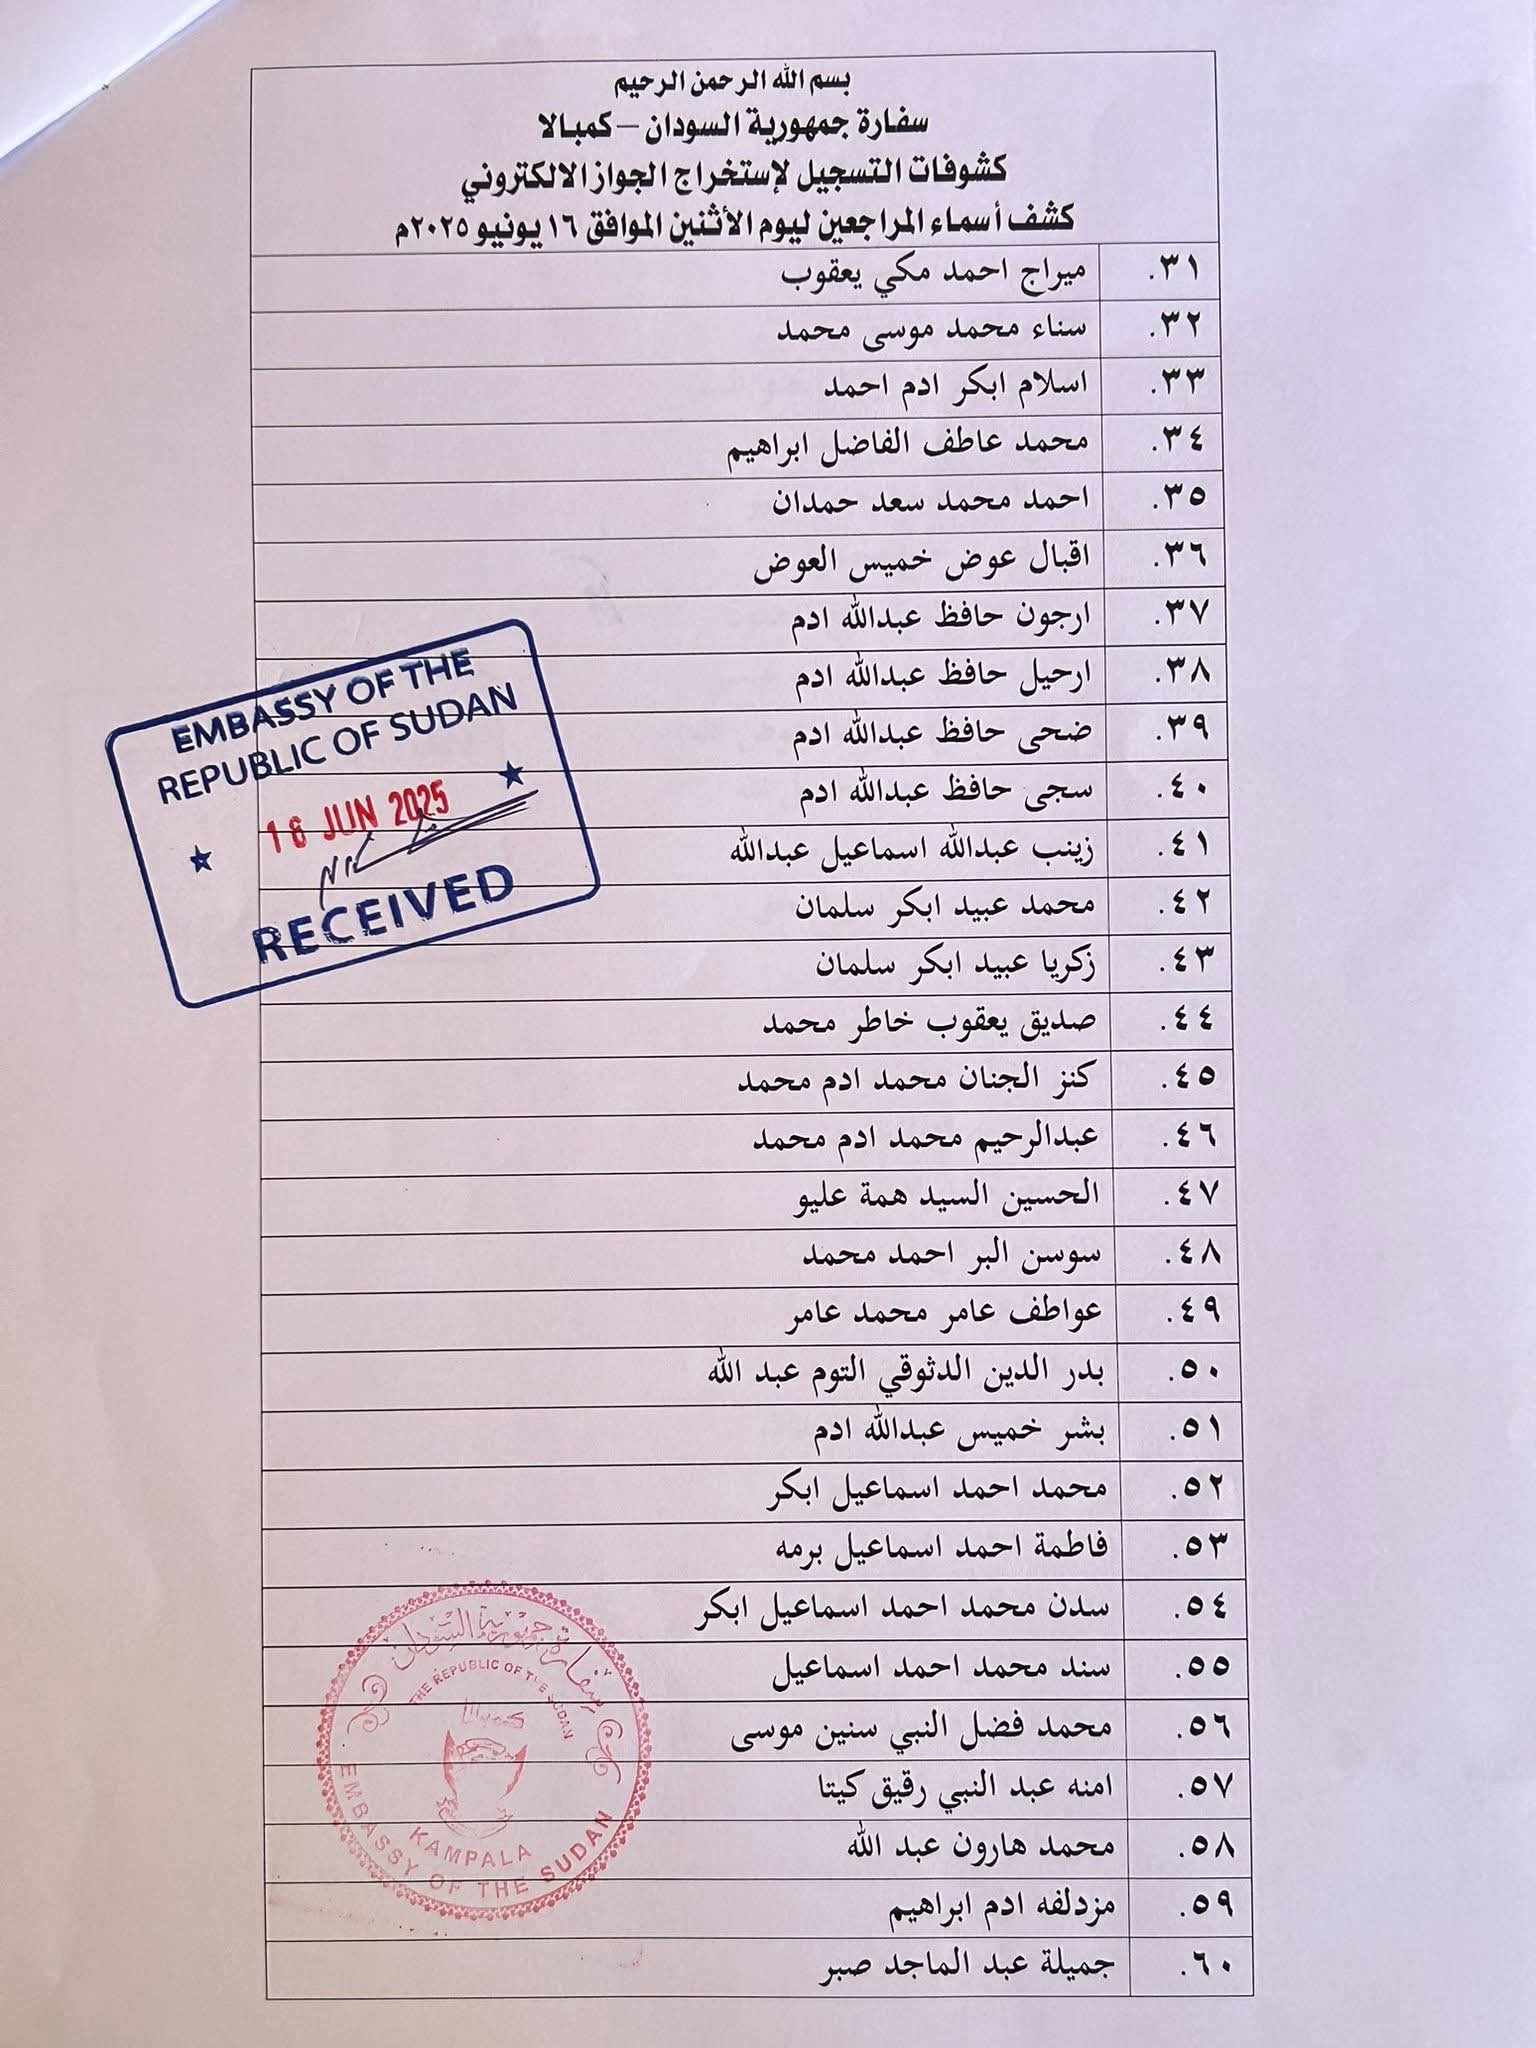 بسم الله الرحمن الرحيم
سفارة جمهورية السودان – كمبالا
كشوفات التسجيل لإستخراج الجواز الالكتروني
كشف أسماء المراجعين ليوم الأثنين الموافق ١٦ يونيو ٢٠٢٥م
٣١. ميراج احمد مكي يعقوب
٣٢. سناء محمد موسى محمد
٣٣. اسلام ابكر ادم احمد
٣٤. محمد عاطف الفاضل ابراهيم
٣٥. احمد محمد سعد حمدان
٣٦. اقبال عوض خميس العوض
٣٧. ارجون حافظ عبدالله ادم
٣٨. ارحيل حافظ عبدالله ادم
٣٩. ضحى حافظ عبدالله ادم
٤٠. سجى حافظ عبدالله ادم
٤١. زينب عبدالله اسماعيل عبدالله
٤٢. محمد عبيد ابكر سلمان
٤٣. زكريا عبيد ابكر سلمان
٤٤. صديق يعقوب خاطر محمد
٤٥. كنز الجنان محمد ادم محمد
٤٦. عبدالرحيم محمد ادم محمد
٤٧. الحسين السيد همة عليو
٤٨. سوسن البر احمد محمد
٤٩. عواطف عامر محمد عامر
٥٠. بدر الدين الدثوقي التوم عبد الله
٥١. بشر خميس عبدالله ادم
٥٢. محمد احمد اسماعيل ابكر
٥٣. فاطمة احمد اسماعيل برمه
٥٤. سدن محمد احمد اسماعيل ابكر
٥٥. سند محمد احمد اسماعيل
٥٦. محمد فضل النبي سنين موسى
٥٧. امنه عبد النبي رقيق كيتا
٥٨. محمد هارون عبد الله
٥٩. مزدلفه ادم ابراهيم
٦٠. جميلة عبد الماجد صبر
EMBASSY OF THE
REPUBLIC OF SUDAN
16 JUN 2025
RECEIVED
سفارة جمهورية السودان
THE REPUBLIC OF THE SUDAN
كمبالا
KAMPALA
EMBASSY OF THE SUDAN